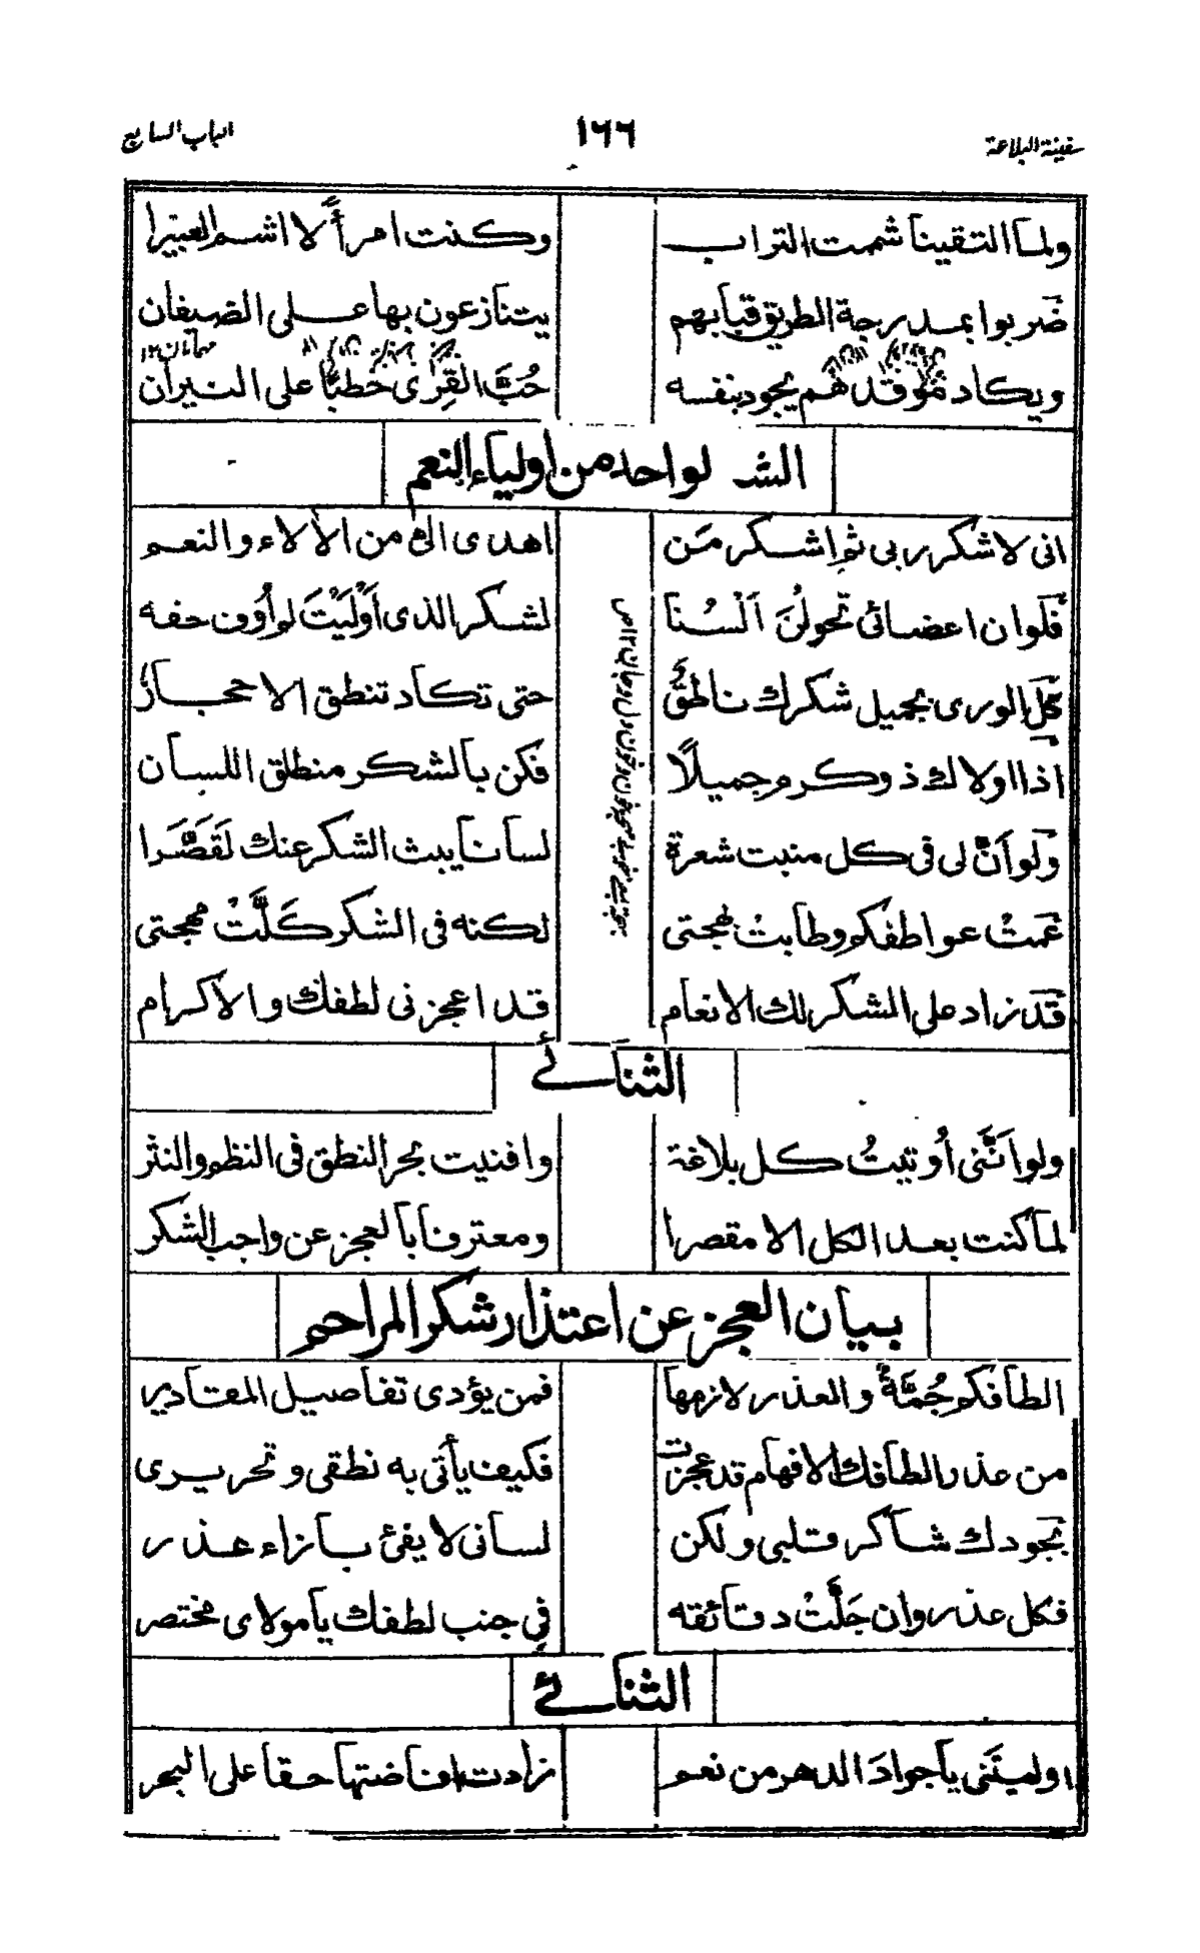 سفينة البلاغة ١٦٦ الباب السابع
ولما التقينا شممت التراب وكنت امرأً لا اشم العبيرا
ضَربوا بمدرجة الطريق قبابهم يتنازعون بها على الضيفان
ويكاد مُوقدهم يجود بنفسه حُبَّ القِرٰى حَطبًا على النيران
الشكر لواحد من اولياء النعم
انى لاشكر ربى ثم اشكر مَن اهدى الىّ من الألاء والنعم
فلو ان اعضائى تحولْنَ اَلْسُنَا لشكر الذى اَوْلَيْتَ لم اُوف حقه
كلّ الورى بجميل شكرك ناطقٌ حتى تكاد تنطق الاحجارُ
اذا اولاك ذو كرم جميلًا فكن بالشكر منطلق اللسان
ولو اَنَّ لى فى كل منبت شعرة لسانا يبث الشكر عنك لَقَصَّرَا
عَمتْ عواطفكم وطابتْ لهجتى لكنه فى الشكر كَلَّتْ مهجتى
قد زاد على الشكر لك الانعام قد اعجزنى لطفك والاكرام
الثنائے
ولو اَنَّنى اُوتيتُ كل بلاغة وافنيت بحر النطق فى النظم والنثر
لما كنت بعد الكل الا مقصرا ومعترفا بالعجز عن واجب الشكر
بيان العجز عن اعتذار شكر المراحم
الطافكم جُمَّةٌ والعذر لازمها فمن يؤدى تفاصيل المقادير
من عذر الطافك الافهام قد عجزت فكيف يأتى به نطقى وتحريرى
بجودك شاكر قلبى ولكن لسانى لا يفئ بازاء عذر
فكل عذر وان جَلَّتْ دقائقه فى جنب لطفك يا مولاى مختصر
الثنائے
اوليتَنى يا جوادَ الدهر من نعم زادت افاضتها حقا على البحر